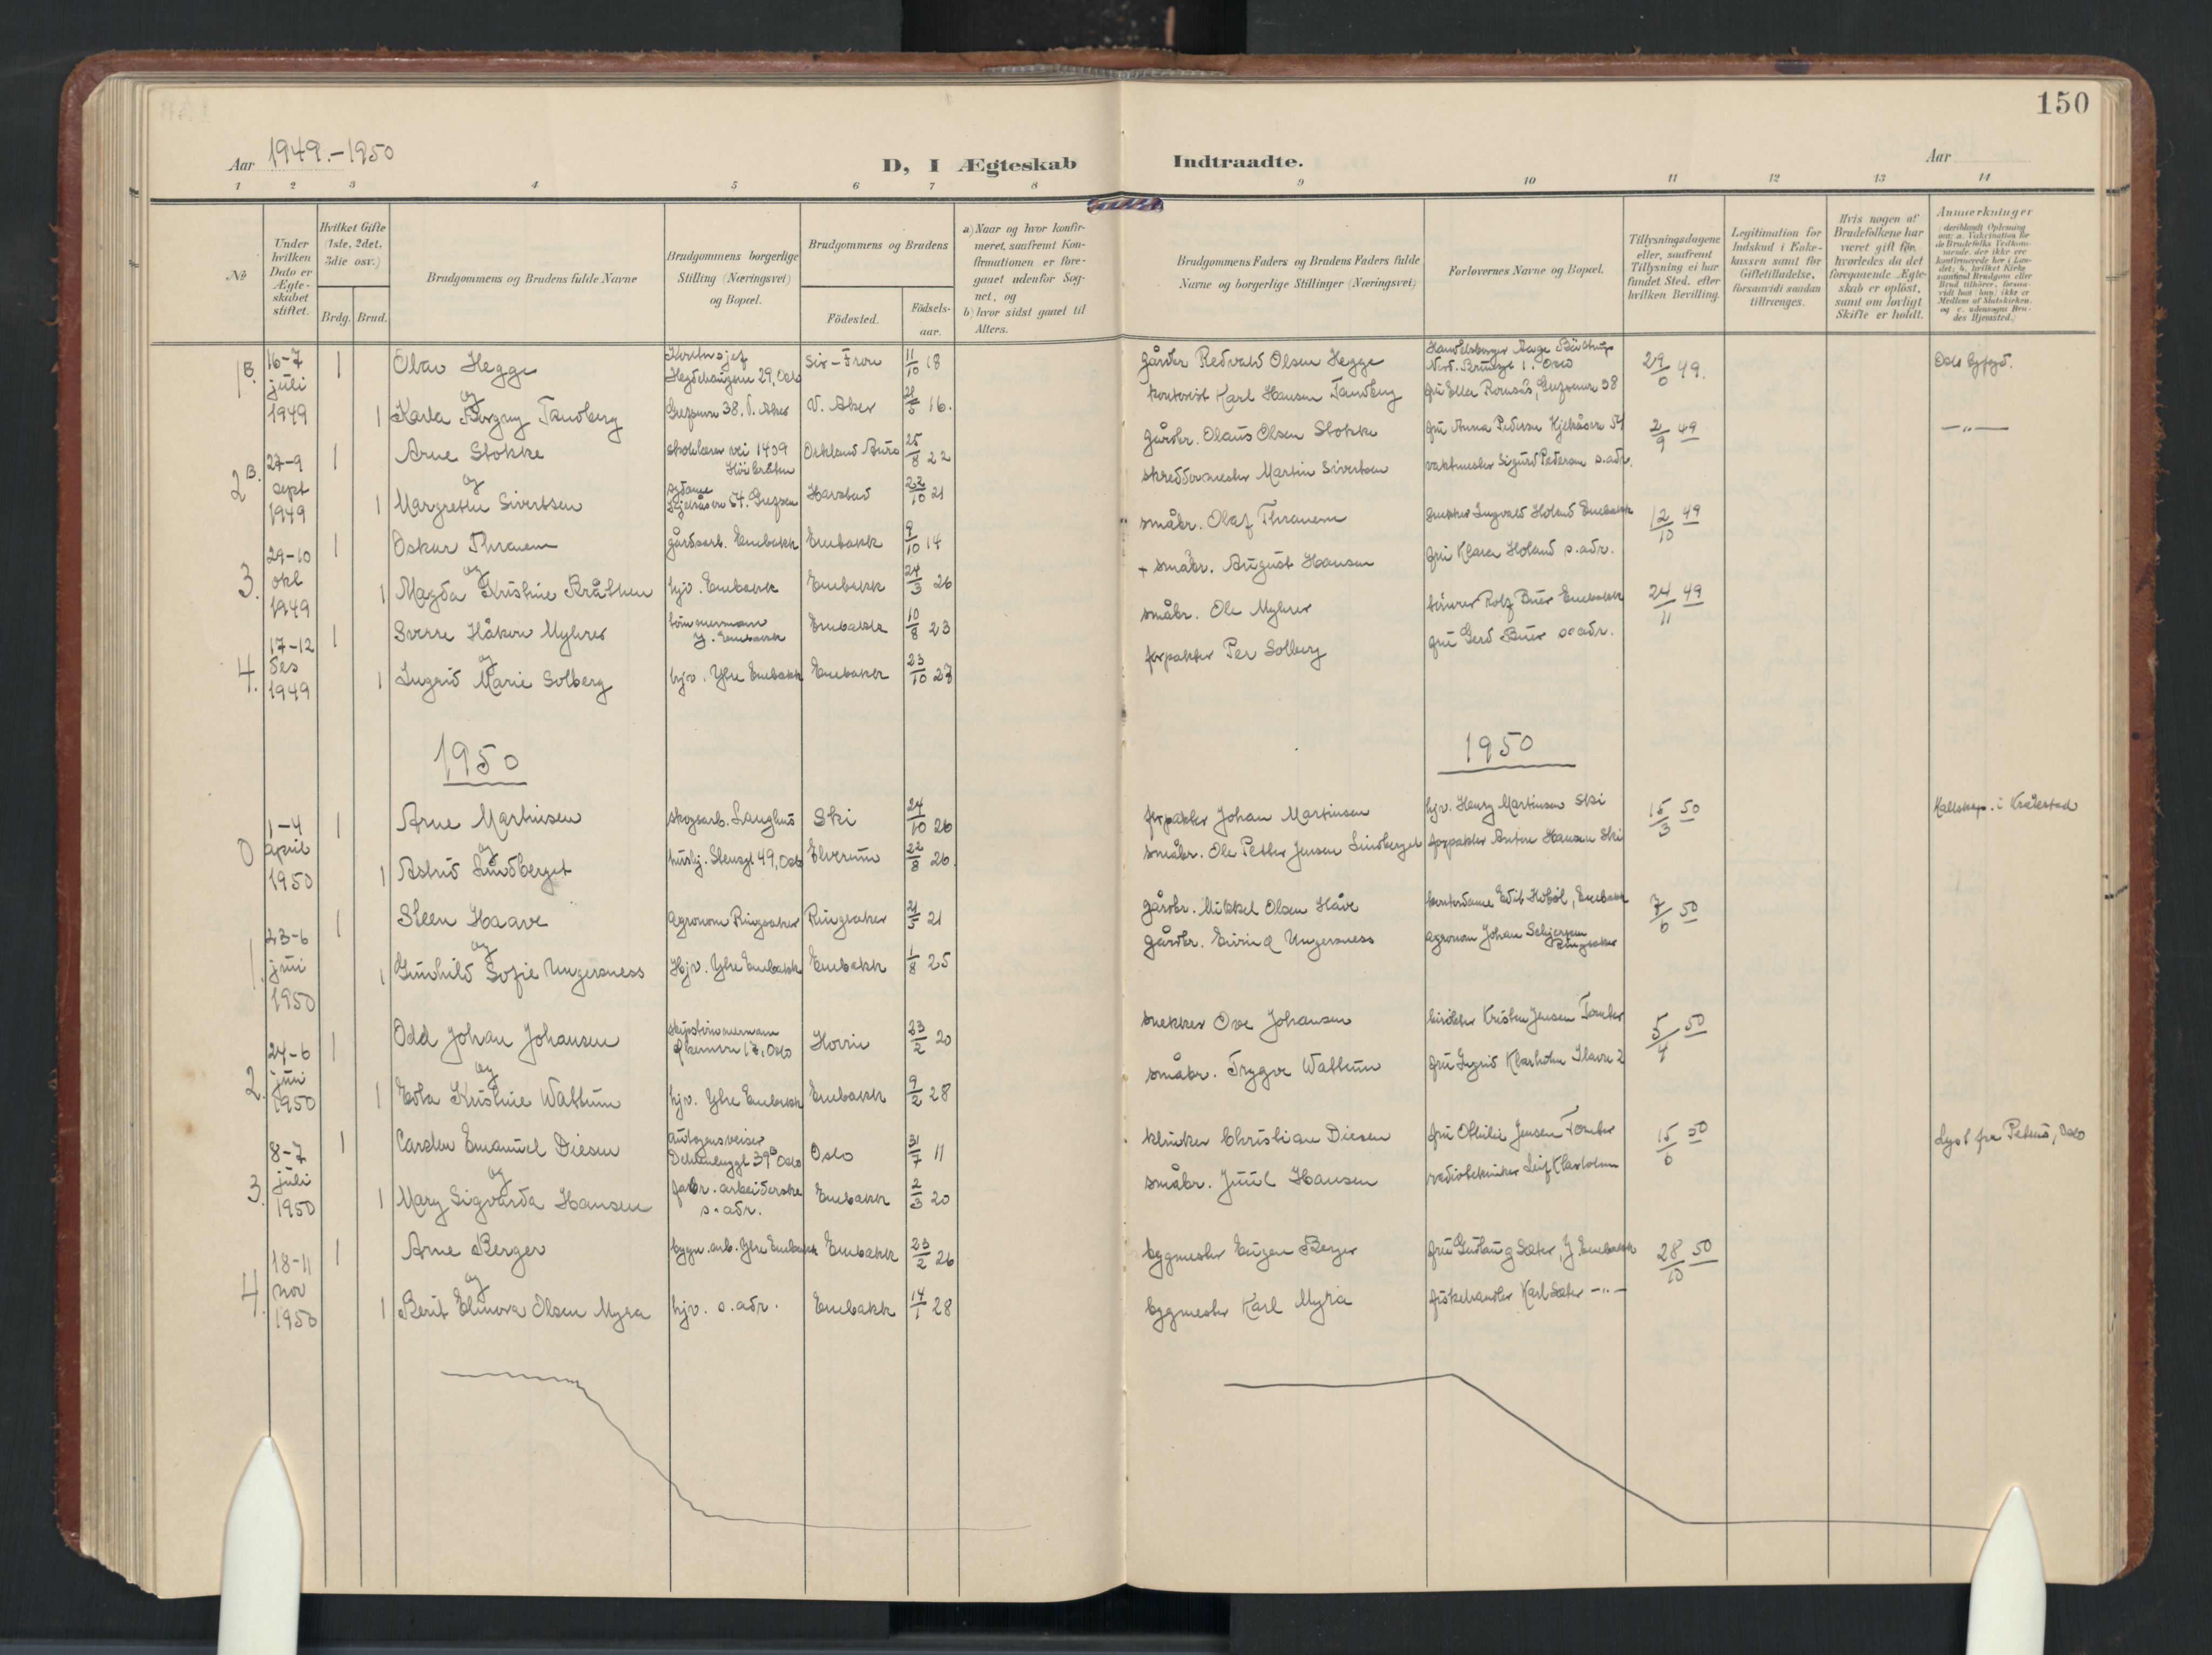 150
Aar 1949.-1950
D, I Ægteskab Indtraadte.
Aar
1 2 3 4 5 6 7 8 9 10 11 12 13 14
No
Under hvilken Dato er Ægteskabet stiftet.
Hvilket Gifte (1ste, 2det, 3die osv.)
Brdg. Brud.
Brudgommens og Brudens fulde Navne
Brudgommens borgerlige Stilling (Næringsvei) og Bopæl.
Brudgommens og Brudens
Födested.
Födsels-aar.
a) Naar og hvor konfirmeret, saafremt Konfirmationen er foregaaet udenfor Sognet, og
b) hvor sidst gaaet til Alters.
Brudgommens Faders og Brudens Faders fulde Navne og borgerlige Stillinger (Næringsvei)
Forlovernes Navne og Bopæl.
Tillysningsdagene eller, saafremt Tillysning ei har fundet Sted, efter hvilken Bevilling.
Legitimation for Indskud i Enkekassen samt for Giftetilladelse, forsaavidt saadan tiltrænges.
Hvis nogen af Brudefolkene har været gift før, hvorledes da det foregaaende Ægteskab er oplöst, samt om lovligt Skifte er holdt.
Anmærkninger
1 B. 16-7 juli 1949
1 Olav Hegge Kontorsjef Hegdehaugsvn 29, Oslo Sør-Fron 11/10 18 gårdbr Redvald Olsen Hegge 29/6 49. Oslo byfgd.
og
1 Karla Borgny Tandberg Grefsenvn 38, V. Aker V. Aker 21/5 16. kontorist Karl Hansen Tandberg fru Ella Romsås, Grefsenvn 38
2 B. 27-9 sept 1949
1 Arne Stokke skoklærer vei 1409 Høibråten Orkland Aurs 25/8 22 gårdbr. Olaus Olsen Stokke fru Anna Pedersen Kjelsåsvn 54 2/9 49 -"-
og
1 Margrethe Sivertsen sydame Kjelsåsvn 54. Grefsen Harstad 22/10 21 skreddermester Martin Sivertsen vaktmester Sigurd Pedersen s.adr.
3. 29-10 okt 1949
1 Oskar Thrauem gårdsarb. Enebakk Enebakk 9/10 14 småbr. Olaf Thrauem snekker Ingvald Holund Enebakk 12/10 49
og
1 Magda Kristine Bråthen hjv. Enebakk Enebakk 24/3 26 + småbr. August Hansen fru Klara Holand s.adr.
4. 17-12 des 1949
1 Sverre Håkon Myhrer tømmermann Y. Enebakk Enebakk 10/8 23 småbr. Ole Myhrer Rolf Buer Enebakk 24/11 49
og
1 Ingrid Marie Solberg hjv. Ytre Enebakk Enebakk 23/10 27 forpakter Per Solberg fru Gerd Buer s. adr.
1950 1950
0 1-4 april 1950
1 Arne Martinsen skogsarb. Langhus Ski 24/10 26 forpakter Johan Martinsen hjv. Henry Martinsen Ski 15/3 50 Kallskap. i Kråkstad
og
1 Astrid Lindberget hushj. Stensgt 49, Oslo Elverum 22/8 26. småbr. Ole Petter Jensen Lindberget forpakter Anton Hansen Ski
1. 23-6 juni 1950
1 Steen Haave agronom Ringsaker Ringsaker 21/5 21 gårdbr. Mikkel Olsen Håve kontordame Edit Hobøl, Enebakk 7/6 50
og
1 Gunhild Sofie Ungersness Hjv. Ytre Enebakk Enebakk 1/8 25 gårdbr. Eivind Ungersness agronom Johan Schjerpen Ringsaker
2. 24-6 juni 1950
1 Odd Johan Johansen skipstømmermann 17, Oslo Horrin 23/2 20 snekker Ove Johansen Kristen Jensen Tomter 5/4 50
og
1 Edla Kristine Wattum hjv. Ytre Enebakk Enebakk 9/2 28 småbr. Trygve Wattum fru Ingrid Klarholm
3. 8-7 juli 1950
1 Carsten Emanuel Diesen autogensveiser Dehlenenggt 39B Oslo Oslo 31/7 11 klinker Christian Diesen fru Othilie Jensen Tomter 15/6 50 Lyst fra Petrus, Oslo
og
1 Mary Sigvarda Hansen fabr. arbeiderske s. adr. Enebakk 2/3 20 småbr. Juul Hansen radiotekniker Leif Klarholm
4. 18-11 nov 1950
1 Arne Berger bygn. arb. Ytre Enebakk Enebakk 23/2 26 byggmester Eugen Berger fru Gudlaug Sæter, Y Enebakk 28/10 50
og
1 Berit Elinora Olsen Myra hjv. s. adr. Enebakk 14/1 28 byggmester Karl Myra fiskehandler Karl Sæter -"-